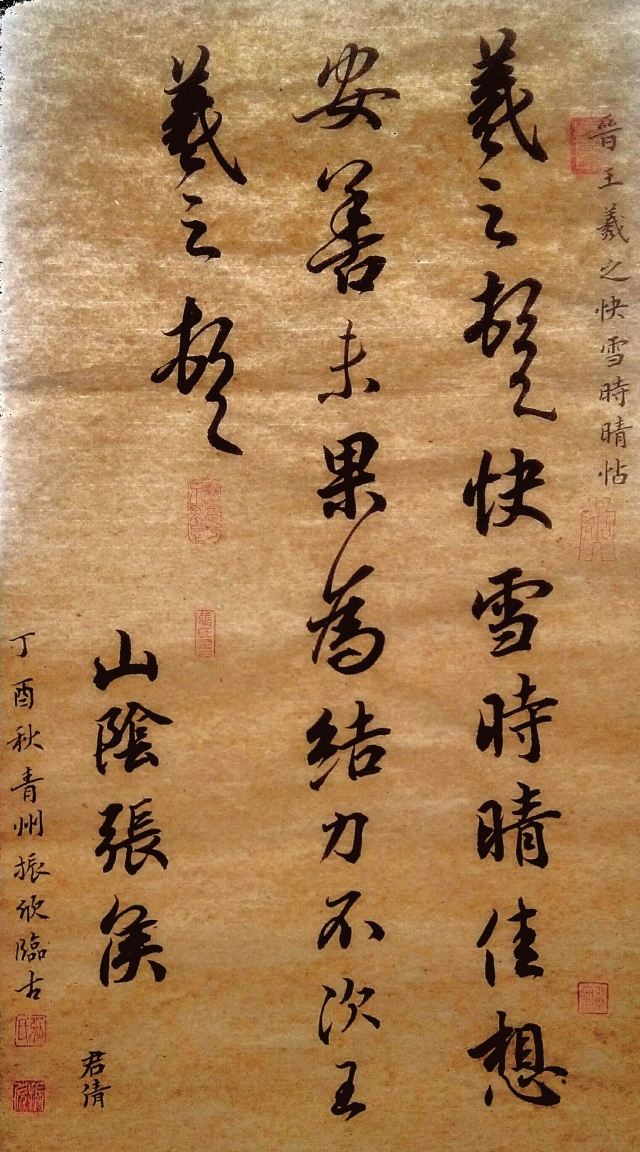 晉王羲之快雪時晴帖
羲之頓快雪時晴佳想
安善未果為結力不次王
羲之頓
山陰張侯
君倩
丁酉秋青州振欣臨古